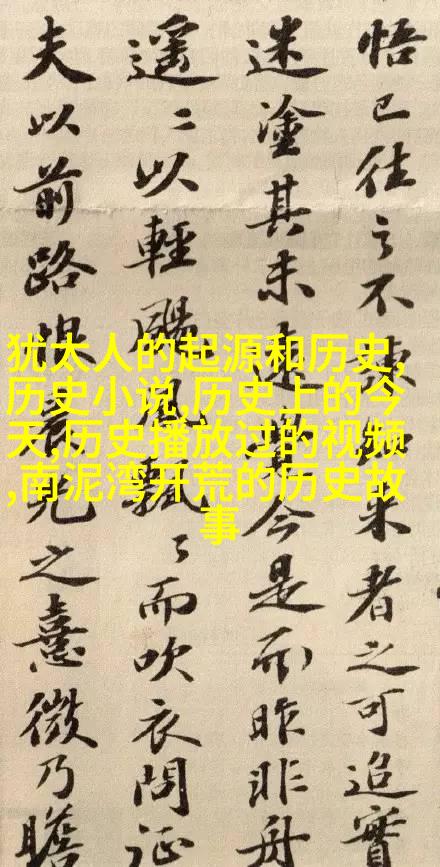 悟已往之不諫知来者之可追實
迷塗其未遠覺今是而昨非舟
遥〻以輕颺風飄〻而吹衣問征
夫以前路恨晨光之熹微乃瞻
犹太人的起源和历史,
历史小说,历史上的今
天,历史播放过的视频
,南泥湾开荒的历史故
事